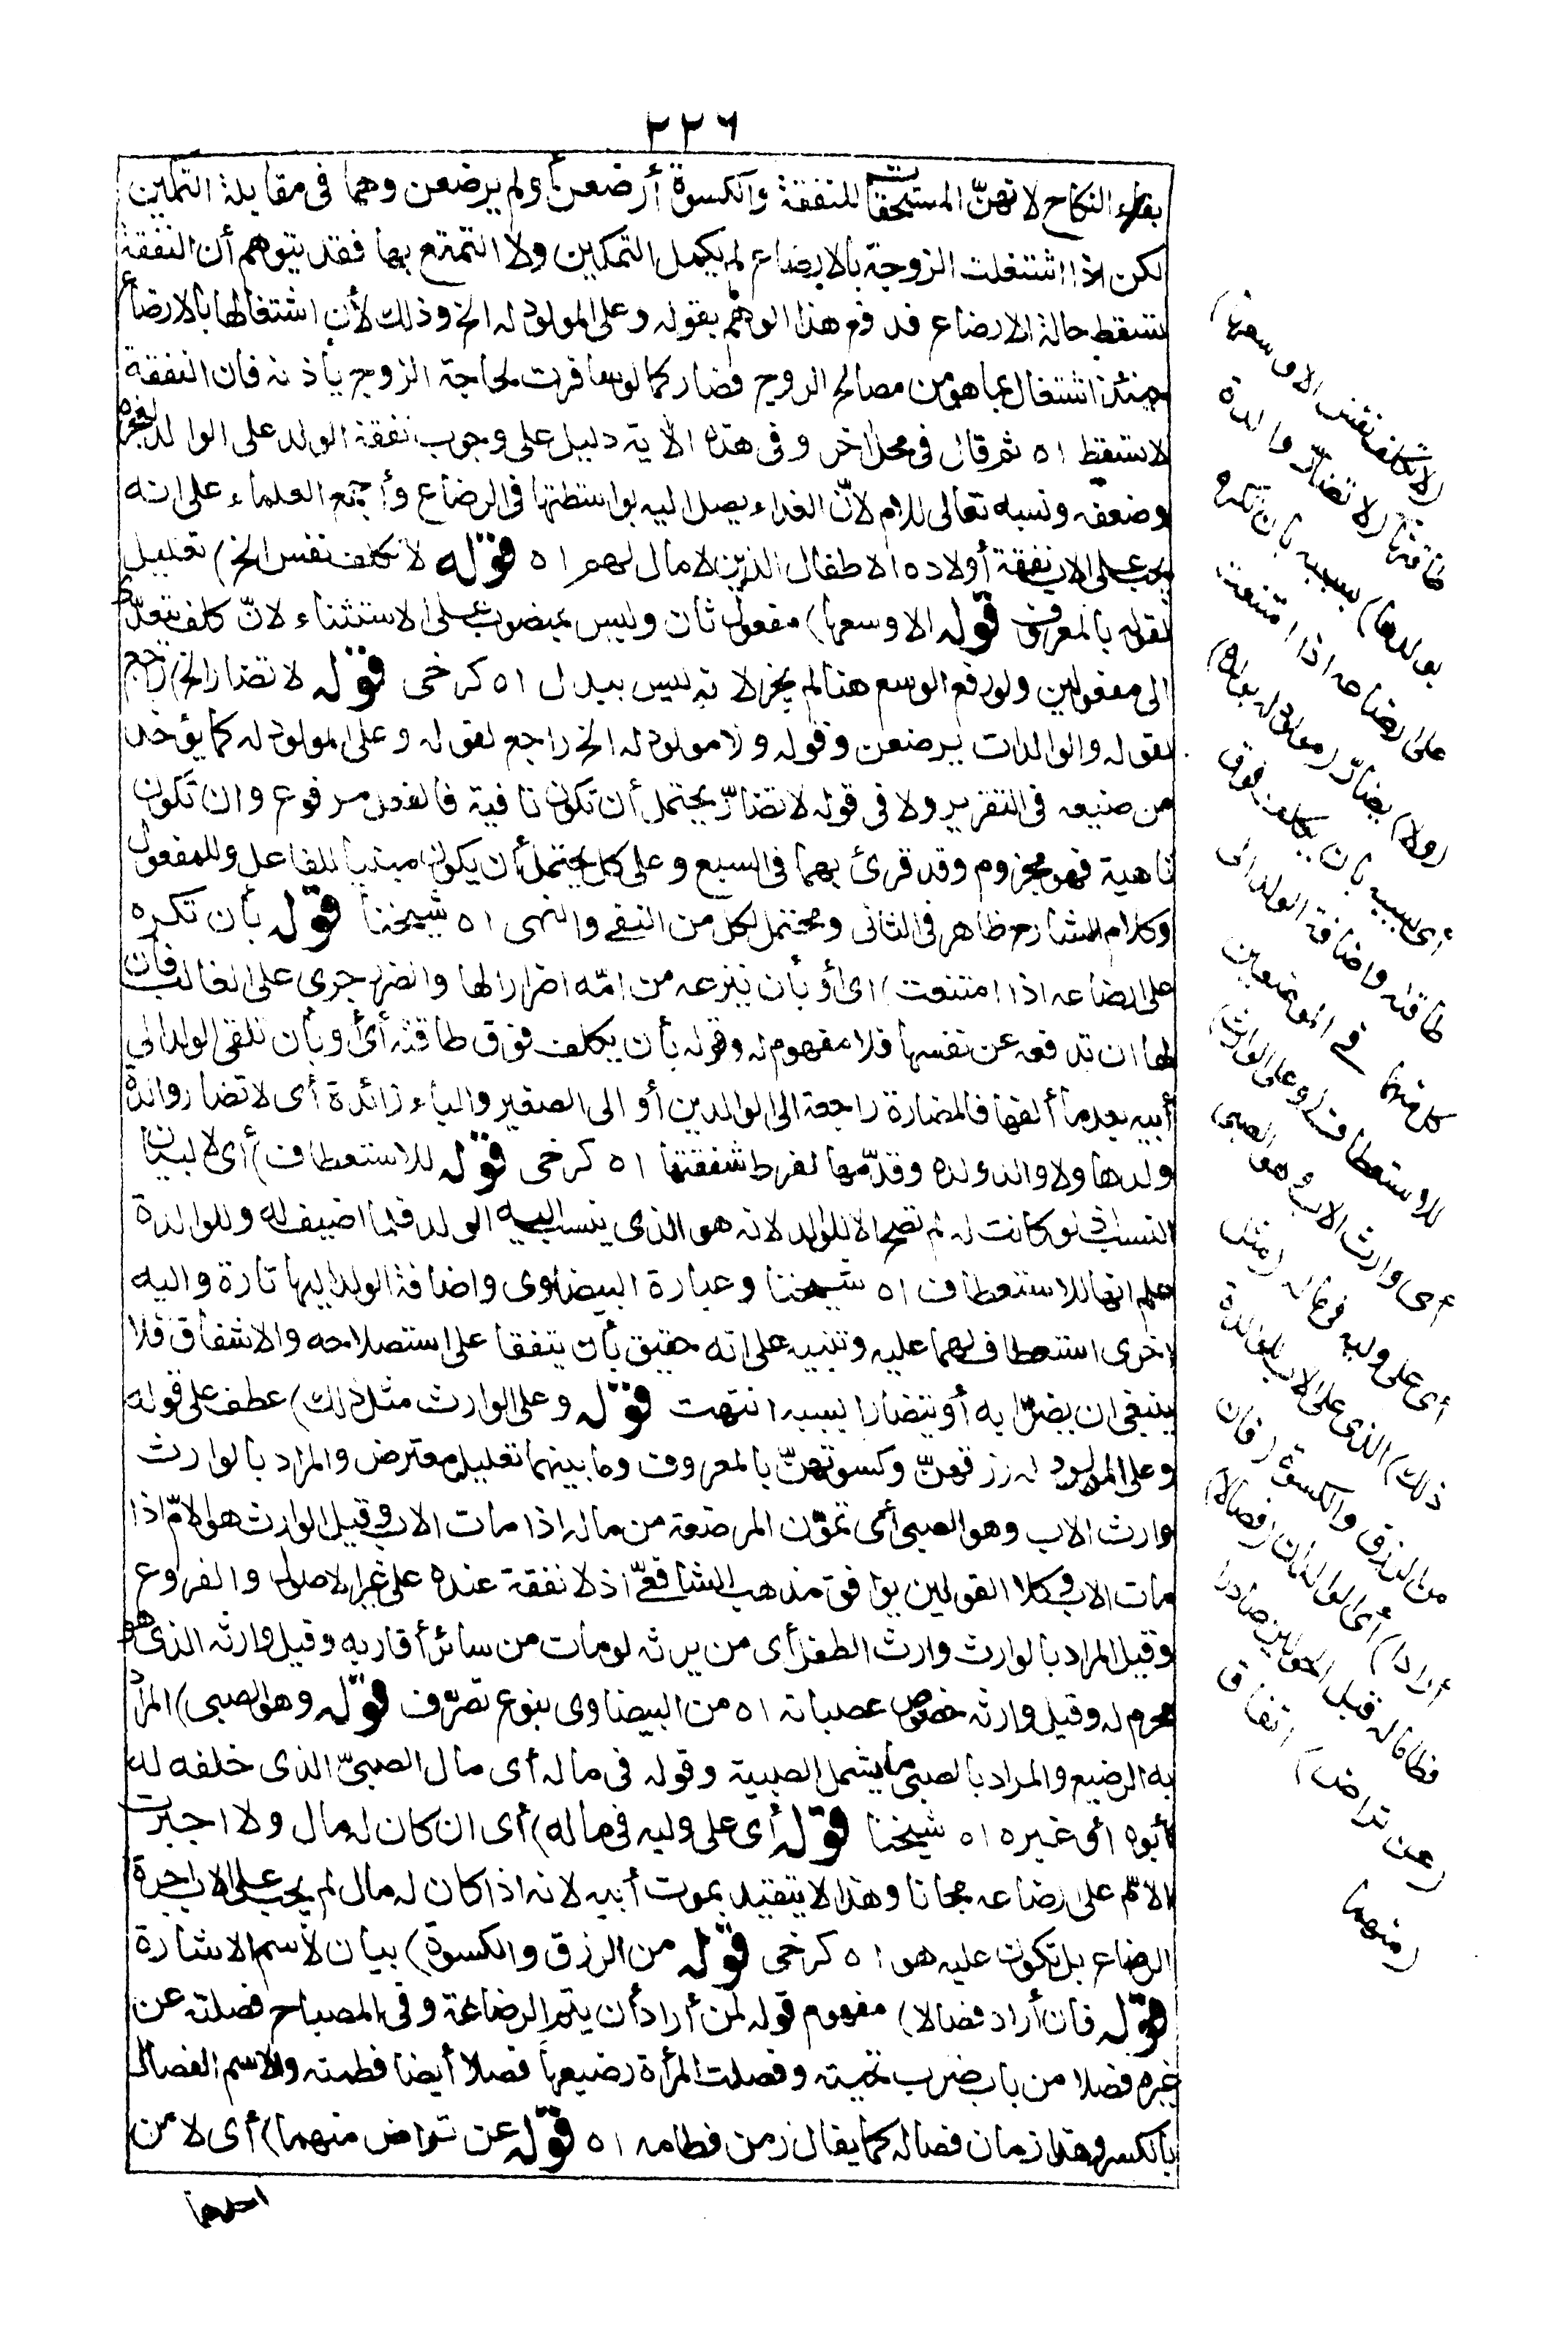 ٢٢٦
بقاء النكاح لانهنّ المستحقات للنفقة والكسوة أرضعن أولم يرضعن وهما فى مقابلة التمكين
لكن اذا اشتغلت الزوجة بالارضاع لم يكمل التمكين ولا التمتع بها فقد يتوهم أن النفقة
تسقط حالة الارضاع فدفع هذا الوهم بقوله وعلى المولود له الخ وذلك لأن اشتغالها بالارضاع
حينئذ اشتغال بما هو من مصالح الزوج فصار كما لو سافرت لحاجة الزوج باذنه فان النفقة
لا تسقط اه ثم قال فى محل اخر وفى هذه الاية دليل على وجوب نفقة الولد على الوالد لعجزه
وضعفه ونسبه تعالى للام لانّ الغذاء يصل اليه بواسطتها فى الرضاع وأجمع العلماء على انه
يجب على الاب نفقة أولاده الاطفال الذين لا مال لهم اه قوله لا تكلف نفس الخ) تعليل
لقوله بالمعروف قوله الا وسعها) مفعول ثان وليس بمنصوب على الاستثناء لانّ كلف يتعدّى
الى مفعولين ولو رفع الوسع هنا لم يجز لانه ليس ببدل اه كرخى قوله لا تضار الخ) راجع
لقوله والوالدات يرضعن وقوله ولا مولود له الخ راجع لقوله وعلى المولود له كما يؤخذ
من صنيعه فى التقرير ولا فى قوله لا تضارّ يحتمل أن تكون نافية فالفعل مرفوع وان تكون
ناهية فهو مجزوم وقد قرئ بهما فى السبع وعلى كل يحتمل أن يكون مبنيا للفاعل وللمفعول
وكلام الشارح ظاهر فى الثانى ومحتمل لكل من النفى والنهى اه شيخنا قوله بأن تكره
على ارضاعه اذا امتنعت) اى أو بأن ينزعه من امّه اضرارا لها وانضر جرى على الغالب فان
لها ان تدفعه عن نفسها فلا مفهوم له وقوله بأن يكلف فوق طاقته أى أو بأن تلقى الولد الى
أبيه بعد ما ألفها فالمضارة راجعة الى الوالدين أو الى الصغير والباء زائدة أى لا تضار والدة
ولدها ولا والد ولده وقدّمها لفرط شفقتها اه كرخى قوله للاستعطاف) أى لا لبيان
النسب اذ لو كانت له لم تصح الا للوالد لانه هو الذى ينسب اليه الولد فلما اضيف له وللوالدة
علم انها للاستعطاف اه شيخنا وعبارة البيضاوى واضافة الولد اليها تارة واليه
اخرى استعطاف لهما عليه وتنبيه على انه حقيق بأن يتفقا على استصلاحه والاشفاق فلا
ينبغى ان يضرّا به أو يتضارا بسببه انتهت قوله وعلى الوارث مثل ذلك) عطف على قوله
وعلى المولود له رزقهنّ وكسوتهنّ بالمعروف وما بينهما تعليل معترض والمراد بالوارث
وارث الاب وهو الصبى أى تموّن المرضعة من ماله اذا مات الاب وقيل الوارث هو الامّ اذا
مات الاب وكلا القولين يوافق مذهب الشافعىّ اذ لا نفقة عنده على غير الاصول والفروع
وقيل المراد بالوارث وارث الطفل أى من يرثه لو مات من سائر أقاربه وقيل وارثه الذى هو
محرم له وقيل وارثه خصوص عصباته اه من البيضاوى بنوع تصرّف قوله وهو الصبى) المراد
به الرضيع والمراد بالصبى ما يشمل الصبية وقوله فى ماله أى مال الصبىّ الذى خلفه له
أبوه أى غيره اه شيخنا قوله أى على وليه فى ماله) أى ان كان له مال ولا اجبرت
الامّ على رضاعه مجانا وهذا لا يتقيد بموت أبيه لانه اذا كان له مال لم يجب على الاب اجرة
الرضاع بل تكون عليه هو اه كرخى قوله من الرزق والكسوة) بيان لأسم الاشارة
قوله فان أراد فصالا) مفهوم قوله لمن أراد أن يتم الرضاعة وفى المصباح فصلته عن
غيره فصلا من باب ضرب نحيته وفصلت المرأة رضيعها فصلا أيضا فطمته والاسم الفصال
بالكسر وهذا زمان فصاله كما يقال زمن فطامه اه قوله عن تراض منهما) أى لا من
احدهما
(لا تكلف نفس الا وسعها)
طاقتها (لا تضارّ والدة
بولدها) بسببه بأن تكره
على ارضاعه اذا امتنعت
(ولا) يضارّ (مولود له بولده)
أى بسببه بان يكلف فوق
طاقته واضافة الولد الى
كل منهما فى الموضعين
للاستعطاف (وعلى الوارث)
أى وارث الاب وهو الصبى
أى على وليه فى ماله (مثل
ذلك) الذى على الاب للوالدة
من الرزق والكسوة (فان
أرادا) أى الوالدان (فصالا)
فطاما له قبل الحولين صادرا
(عن تراض) اتفاق
(منهما